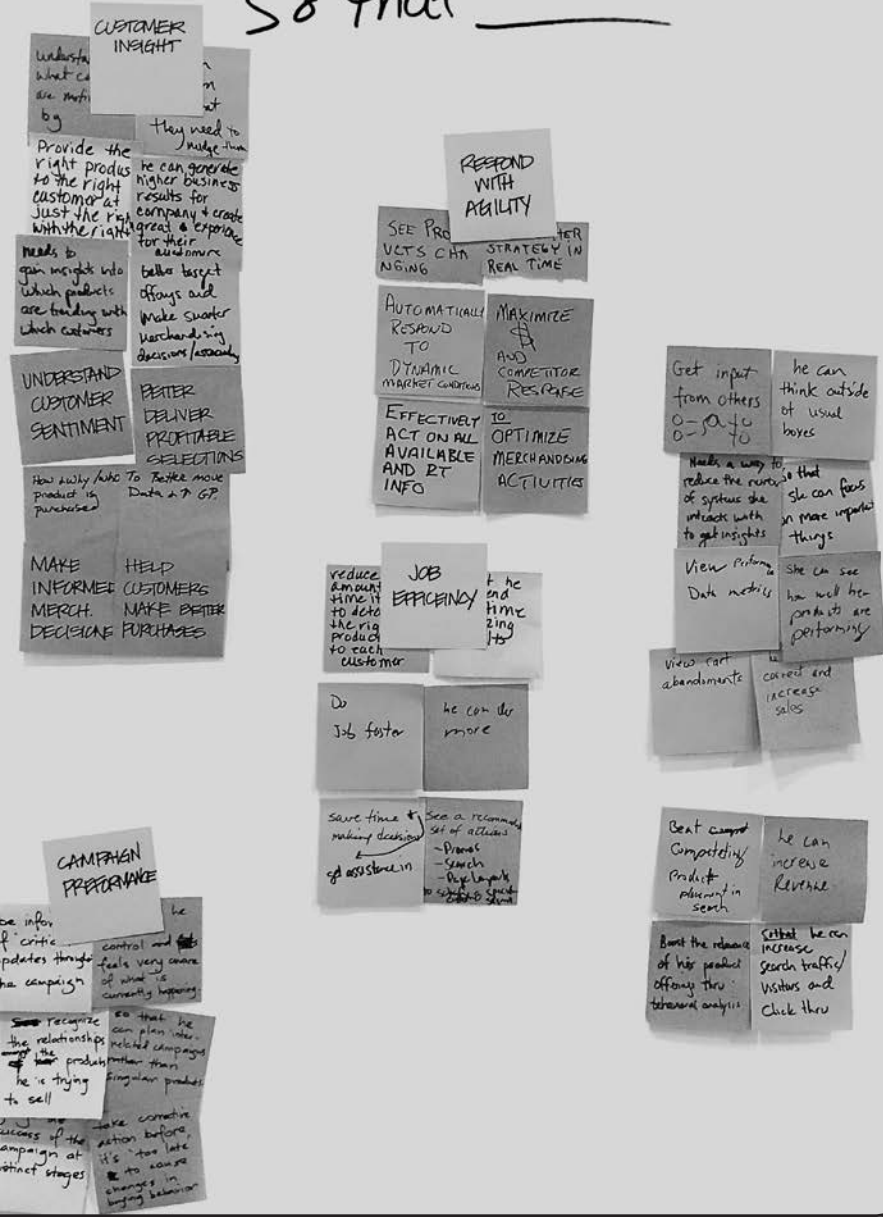 So that
CUSTOMER
INSIGHT
understa
what c
are moti
by
at
they need to
nudge them
Provide the
right produs
to the right
customer at
just the rig
with the right
he can generate
higher business
results for
company + create
great experience
for their
needs to
gain insights into
which products
are trending with
which customers
better target
offerings and
make smarter
merchandising
decisions/
UNDERSTAND
CUSTOMER
SENTIMENT
BETTER
DELIVER
PROFITABLE
SELECTIONS
How & Why/who
product is
purchased
To Better move
Data & ↑ GP.
MAKE
INFORMED
MERCH.
DECISIONS
HELP
CUSTOMERS
MAKE BETTER
PURCHASES
RESPOND
WITH
AGILITY
SEE PRO
UCTS CHA
NGING
TER
STRATEGY IN
REAL TIME
AUTOMATICALLY
RESPOND
TO
DYNAMIC
MARKET CONDITIONS
MAXIMIZE
$
AND
COMPETITOR
RESPONSE
EFFECTIVELY
ACT ON ALL
AVAILABLE
AND RT
INFO
TO
OPTIMIZE
MERCHANDISING
ACTIVITIES
JOB
EFFICEINCY
reduce
amount
time it
to dete
the rig
product
to each
customer
t he
end
time
zing
lts
Do
Job faster
he can do
more
save time &
making decision
get assistance in
See a recommended
set of actions
- Promos
- Search
Get input
from others
he can
think outside
of usual
boxes
Needs a way to
reduce the number
of systems she
interacts with
to get insights
so that
she can focus
on more important
things
View Performance
Data metrics
She can see
how well her
products are
performing
View cart
abandoments
correct and
increase
sales
Beat
Competeting
Product
placement in
search
he can
increase
Revenue
Boost the relevance
of his product
offerings thru
behavioral analysis
so that he can
increase
search traffic/
visitors and
Click thru
CAMPAIGN
PREFORMANCE
be infor
of critic
updates through
the campaign
he
control and
feels very aware
of what is
currently happening.
recognize
the relationships
the products
he is trying
to sell
so that he
can plan inter-
related campaigns
rather than
singular products.
success of the
campaign at
distinct stages
take corrective
action before
it's "too late"
to cause
changes in
buying behavior